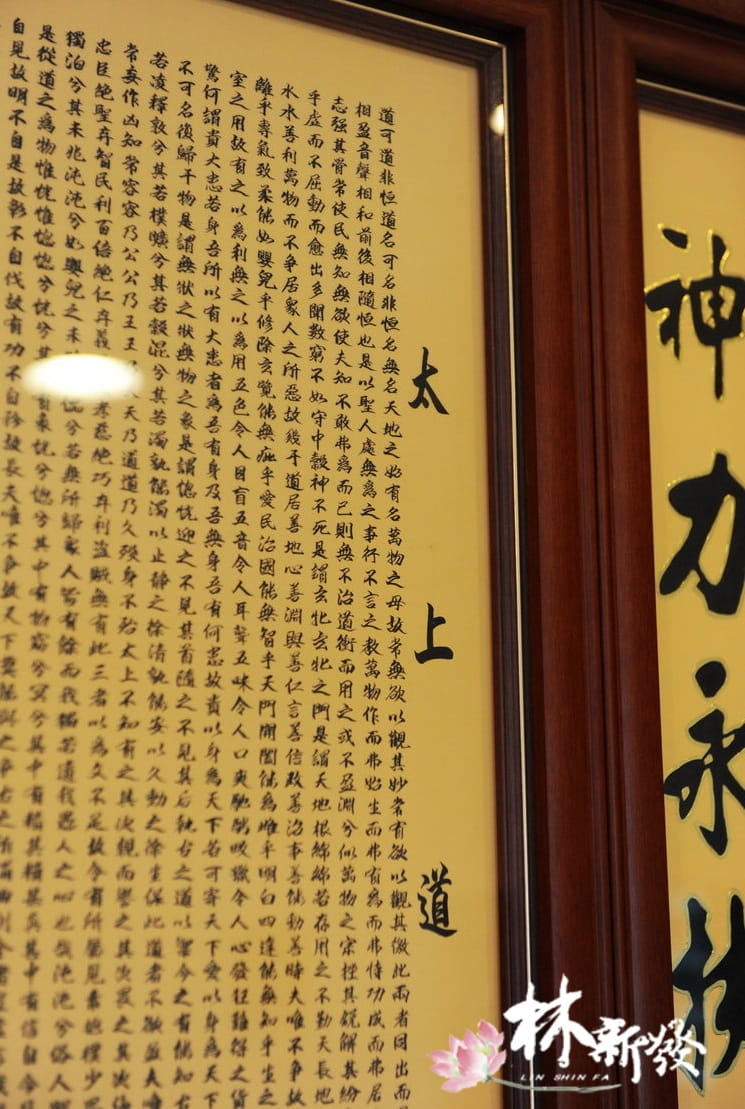 神力永
太上道
道可道非恒道名可名非恒名無名天地之始有名萬物之母故常無欲以觀其妙常有欲以觀其徼此兩者同出而
相盈音聲相和前後相隨恒也是以聖人處無為之事行不言之教萬物作而弗始生而弗有為而弗恃功成而弗居
志强其骨常使民無知無欲使夫知不敢弗為而已則無不治道衝而用之或不盈淵兮似萬物之宗挫其銳解其紛
乎虛而不屈動而愈出多聞數窮不如守中穀神不死是謂玄牝玄牝之門是謂天地根綿綿若存用之不勤天長地
水水善利萬物而不爭居眾人之所惡故幾于道居善地心善淵與善仁言善信政善治事善能動善時夫唯不爭故
離乎專氣致柔能如嬰兒乎修除玄覽能無疵乎愛民治國能無智乎天門開闔能為雌乎明白四達能無知乎生之
室之用故有之以為利無之以為用五色令人目盲五音令人耳聾五味令人口爽馳騁畋獵令人心發狂難得之貨
驚何謂貴大患若身吾所以有大患者為吾有身及吾無身吾有何患故貴以身為天下若可寄天下愛以身為天下
不可名復歸于物是謂無狀之狀無物之象是謂惚恍迎之不見其首隨之不見其后執古之道以禦今之有能知古
若凌釋敦兮其若樸曠兮其若穀混兮其若濁孰能濁以止静之徐清孰能安以久動之徐生保此道者不欲盈夫唯
常妄作凶知常容容乃公公乃王王天乃道道乃久歿身不殆太上不知有之其次親而譽之其次畏之其次侮
忠臣絕聖弃智民利百倍絕仁弃義孝慈絕巧弃利盗賊無有此三者以為文不足故令有所屬見素抱樸少思
獨泊兮其未兆沌沌兮如嬰兒之未兮若無所歸眾人皆有餘而我獨若遺我愚人之心也哉沌沌兮俗人
是從道之為物惟恍惟惚惚兮恍兮其有象恍兮惚兮其中有物窈兮冥兮其中有精其精甚真其中有信自今
自見故明不自是故彰不自伐故有功不自矜故長夫唯不爭故天下莫能與之爭古之所謂曲則全者
林新發
LIN SHIN FA